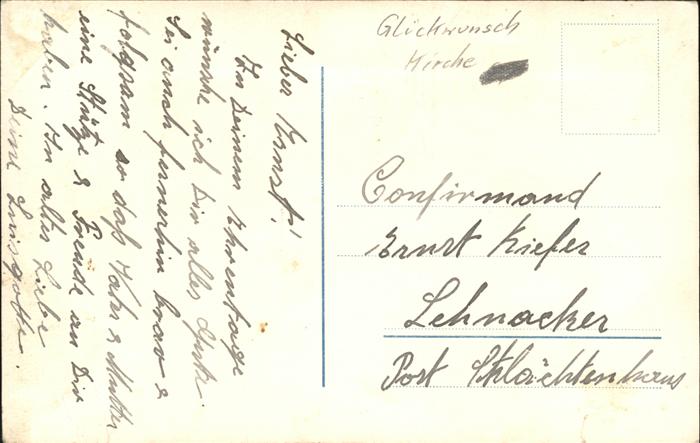 Glückwunsch
Kirche
Lieber Ernst!
Zu Deinem Ehrentage
wünsche ich Dir alles Gute.
Sei auch fernerhin brav &
folgsam so daß Vater & Mutter
eine Stütze & Freude an Dir
haben. In alter Liebe
Deine
Confirmand
Ernst Kiefer
Lehnacker
Post Schlächtenhaus